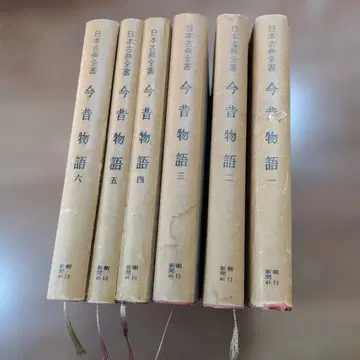 日本古典全書
今昔物語
六
朝日
新聞社
日本古典全書
今昔物語
五
朝日
新聞社
日本古典全書
今昔物語
四
朝日
新聞社
日本古典全書
今昔物語
三
朝日
新聞社
日本古典全書
今昔物語
二
朝日
新聞社
日本古典全書
今昔物語
一
朝日
新聞社